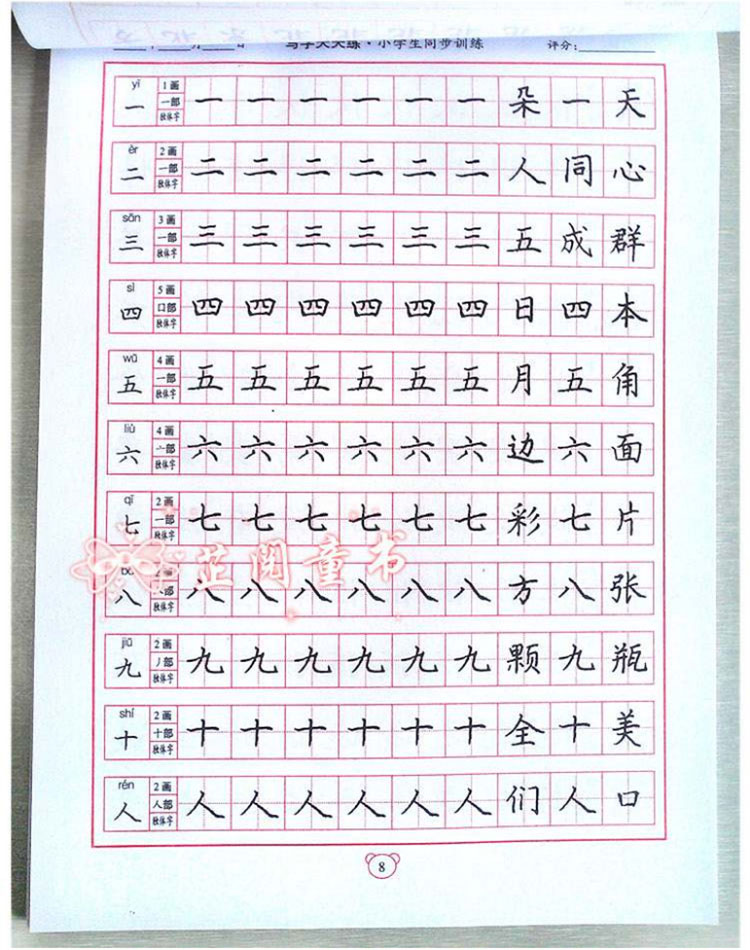 月 写字天天练·小学生同步训练 评分:
yī 1画
一 一部 一 一 一 一 一 一 朵 一 天
独体字
èr 2画
二 一部 二 二 二 二 二 二 人 同 心
独体字
sān 3画
三 一部 三 三 三 三 三 三 五 成 群
独体字
sì 5画
四 口部 四 四 四 四 四 四 日 四 本
独体字
wǔ 4画
五 一部 五 五 五 五 五 五 月 五 角
独体字
liù 4画
六 亠部 六 六 六 六 六 六 边 六 面
独体字
qī 2画
七 一部 七 七 七 七 七 七 彩 七 片
独体字
芷阅童书
八 八部 八 八 八 八 八 八 方 八 张
独体字
jiǔ 2画
九 丿部 九 九 九 九 九 九 颗 九 瓶
独体字
shí 2画
十 十部 十 十 十 十 十 十 全 十 美
独体字
rén 2画
人 人部 人 人 人 人 人 人 们 人 口
独体字
8